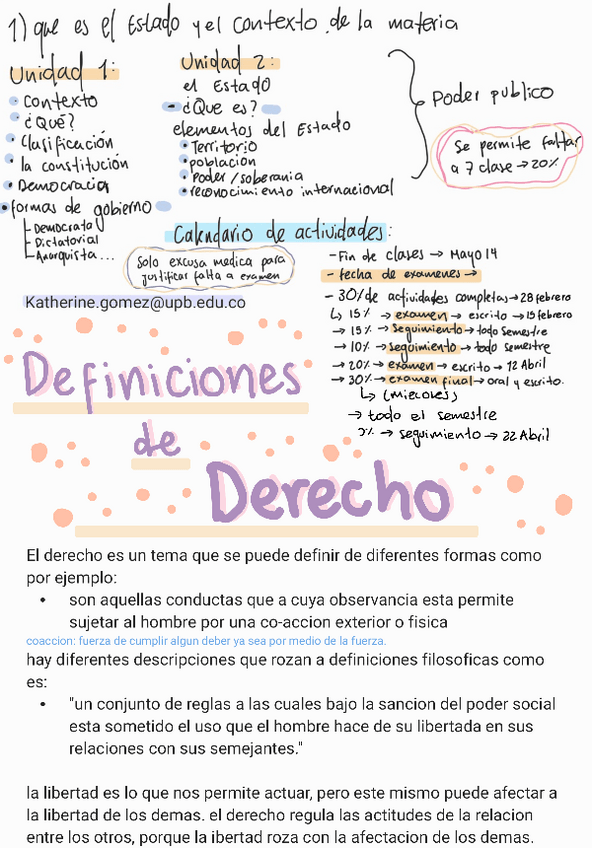 1) que es el Estado y el contexto de la materia
Unidad 1:
• Contexto
• ¿Qué?
• Clasificación
• la constitución
• Democracia
• formas de gobierno
Democrata
Dictatorial
Anarquista...
Unidad 2:
el Estado
- ¿Que es?
elementos del Estado
• Territorio
• población
• Poder / soberania
• reconocimiento internacional
Poder publico
Se permite faltar
a 7 clase → 20%
Calendario de actividades:
Solo excusa medica para
justificar falta a examen
Katherine.gomez@upb.edu.co
- Fin de clases → Mayo 14
- fecha de examenes →
- 30% de actividades completas → 28 febrero
↳ 15% → examen → escrito → 15 febrero
→ 15% → seguimiento → todo semestre
→ 10% → seguimiento → todo semestre
→ 20% → examen → escrito → 12 Abril
→ 30% → examen final → oral y escrito.
↳ (miercoles)
→ todo el semestre
→ seguimiento → 22 Abril
Definiciones
de
Derecho
El derecho es un tema que se puede definir de diferentes formas como
por ejemplo:
• son aquellas conductas que a cuya observancia esta permite
sujetar al hombre por una co-accion exterior o fisica
coaccion: fuerza de cumplir algun deber ya sea por medio de la fuerza.
hay diferentes descripciones que rozan a definiciones filosoficas como
es:
• "un conjunto de reglas a las cuales bajo la sancion del poder social
esta sometido el uso que el hombre hace de su libertada en sus
relaciones con sus semejantes."
la libertad es lo que nos permite actuar, pero este mismo puede afectar a
la libertad de los demas. el derecho regula las actitudes de la relacion
entre los otros, porque la ibertad roza con la afectacion de los demas.